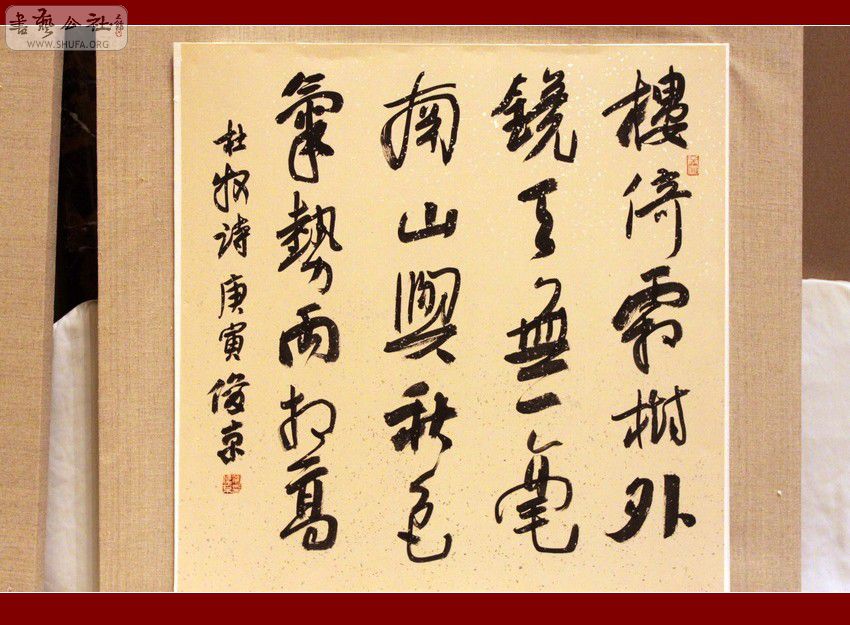 樓倚霜樹外
鏡天無一毫
南山與秋色
氣勢兩相高
杜牧詩 庚寅 俊京
書藝公社
WWW.SHUFA.ORG